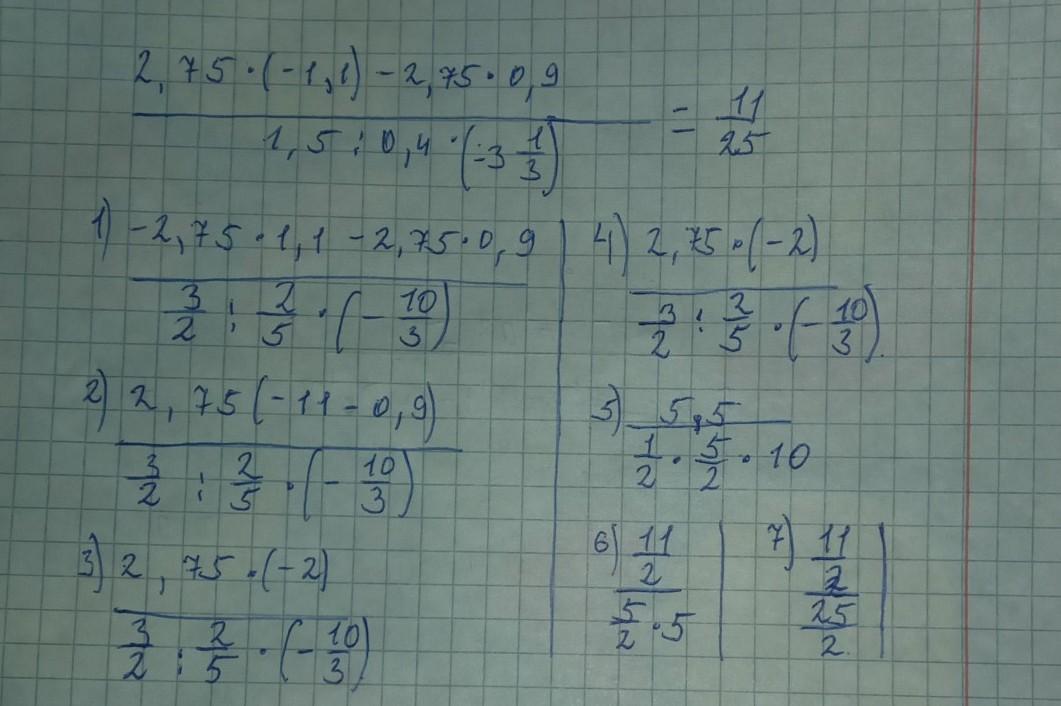 2,75·(-1,1)-2,75·0,9
1,5:0,4·(-3 1/3)
= 11/25
1) -2,75·1,1-2,75·0,9
3/2 : 2/5 · (-10/3)
2) 2,75(-11-0,9)
3/2 : 2/5 · (-10/3)
3) 2,75·(-2)
3/2 : 2/5 · (-10/3)
4) 2,75·(-2)
3/2 : 2/5 · (-10/3).
5) 5,5
1/2 · 5/2 · 10
6) 11/2
5/2 · 5
7) 11/2
25/2.